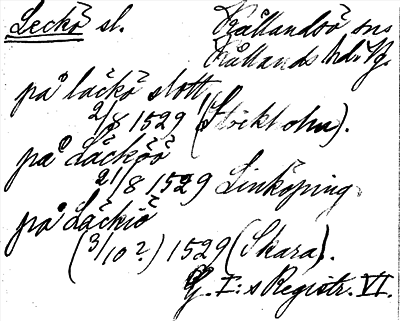 Leckö sl. Kållandsö sns
Kållands hd. Vg.
på läckö slott
2/8 1529 (Stockholm).
på Läcköö
21/8 1529 Linköping
på Läckiö
(3/10 ?) 1529 (Skara).
G. I:s Registr. VI.